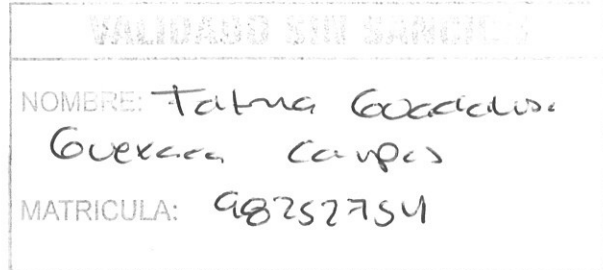 VALIDADO SIN SANCI
NOMBRE: Fatima Guadalupe
Guevara Campos
MATRICULA: 98252754